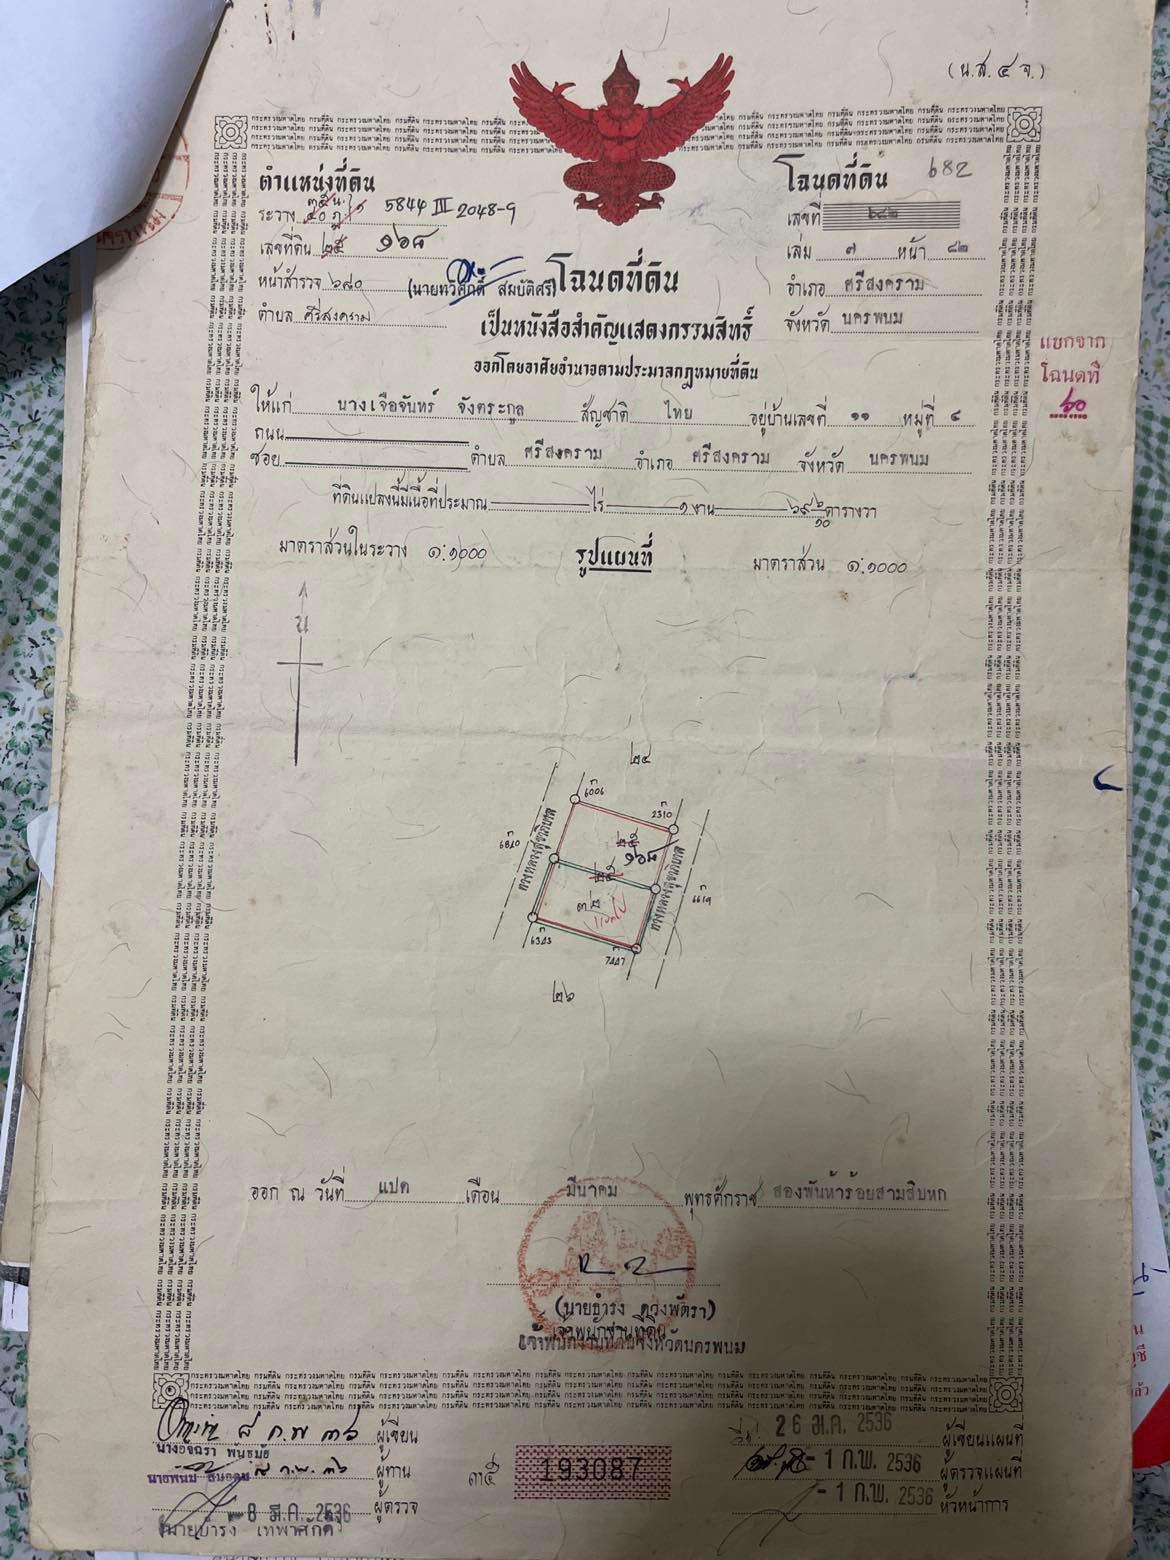 (น.ส. ๔ จ.)
ตำแหน่งที่ดิน
ระวาง 5844 III 2048-9
เลขที่ดิน ๒๕ ๑๖๘
หน้าสำรวจ ๖๘๐
ตำบล ศรีสงคราม
โฉนดที่ดิน 682
เลขที่ ๖๘๒
เล่ม ๗ หน้า ๘๒
อำเภอ ศรีสงคราม
จังหวัด นครพนม
(นายทวีศักดิ์ สมบัติศรี)
โฉนดที่ดิน
เป็นหนังสือสำคัญแสดงกรรมสิทธิ์
ออกโดยอาศัยอำนาจตามประมวลกฎหมายที่ดิน
แยกจาก
โฉนดที่
๖๐
ให้แก่ นางเจือจันทร์ จังตระกูล สัญชาติ ไทย อยู่บ้านเลขที่ ๑๑ หมู่ที่ ๔
ถนน
ซอย ตำบล ศรีสงคราม อำเภอ ศรีสงคราม จังหวัด นครพนม
ที่ดินแปลงนี้มีเนื้อที่ประมาณ ไร่ ๑ งาน ๖๙ ๖/๑๐ ตารางวา
มาตราส่วนในระวาง ๑:๑๐๐๐ รูปแผนที่ มาตราส่วน ๑:๑๐๐๐
น
๒๔
ทางหลวงสุขาภิบาล
๒๕
๑๖๘
ทางหลวงสุขาภิบาล
๓๒
๒๖
ออก ณ วันที่ แปด เดือน มีนาคม พุทธศักราช สองพันห้าร้อยสามสิบหก
(นายธำรง ดวงพัตรา)
เจ้าพนักงานที่ดิน
เจ้าพนักงานที่ดินจังหวัดนครพนม
๘ ก.พ ๓๖ ผู้เขียน
นางอัจฉรา พันธุ์มัย
๘ ก.พ. ๓๖ ผู้ทาน
- 8 มี.ค. 2536 ผู้ตรวจ
นายบำรุง เทพาศักดิ์
๓๕ 193087
26 ม.ค. 2536 ผู้เขียนแผนที่
- 1 ก.พ. 2536 ผู้ตรวจแผนที่
- 1 ก.พ. 2536 หัวหน้าการ